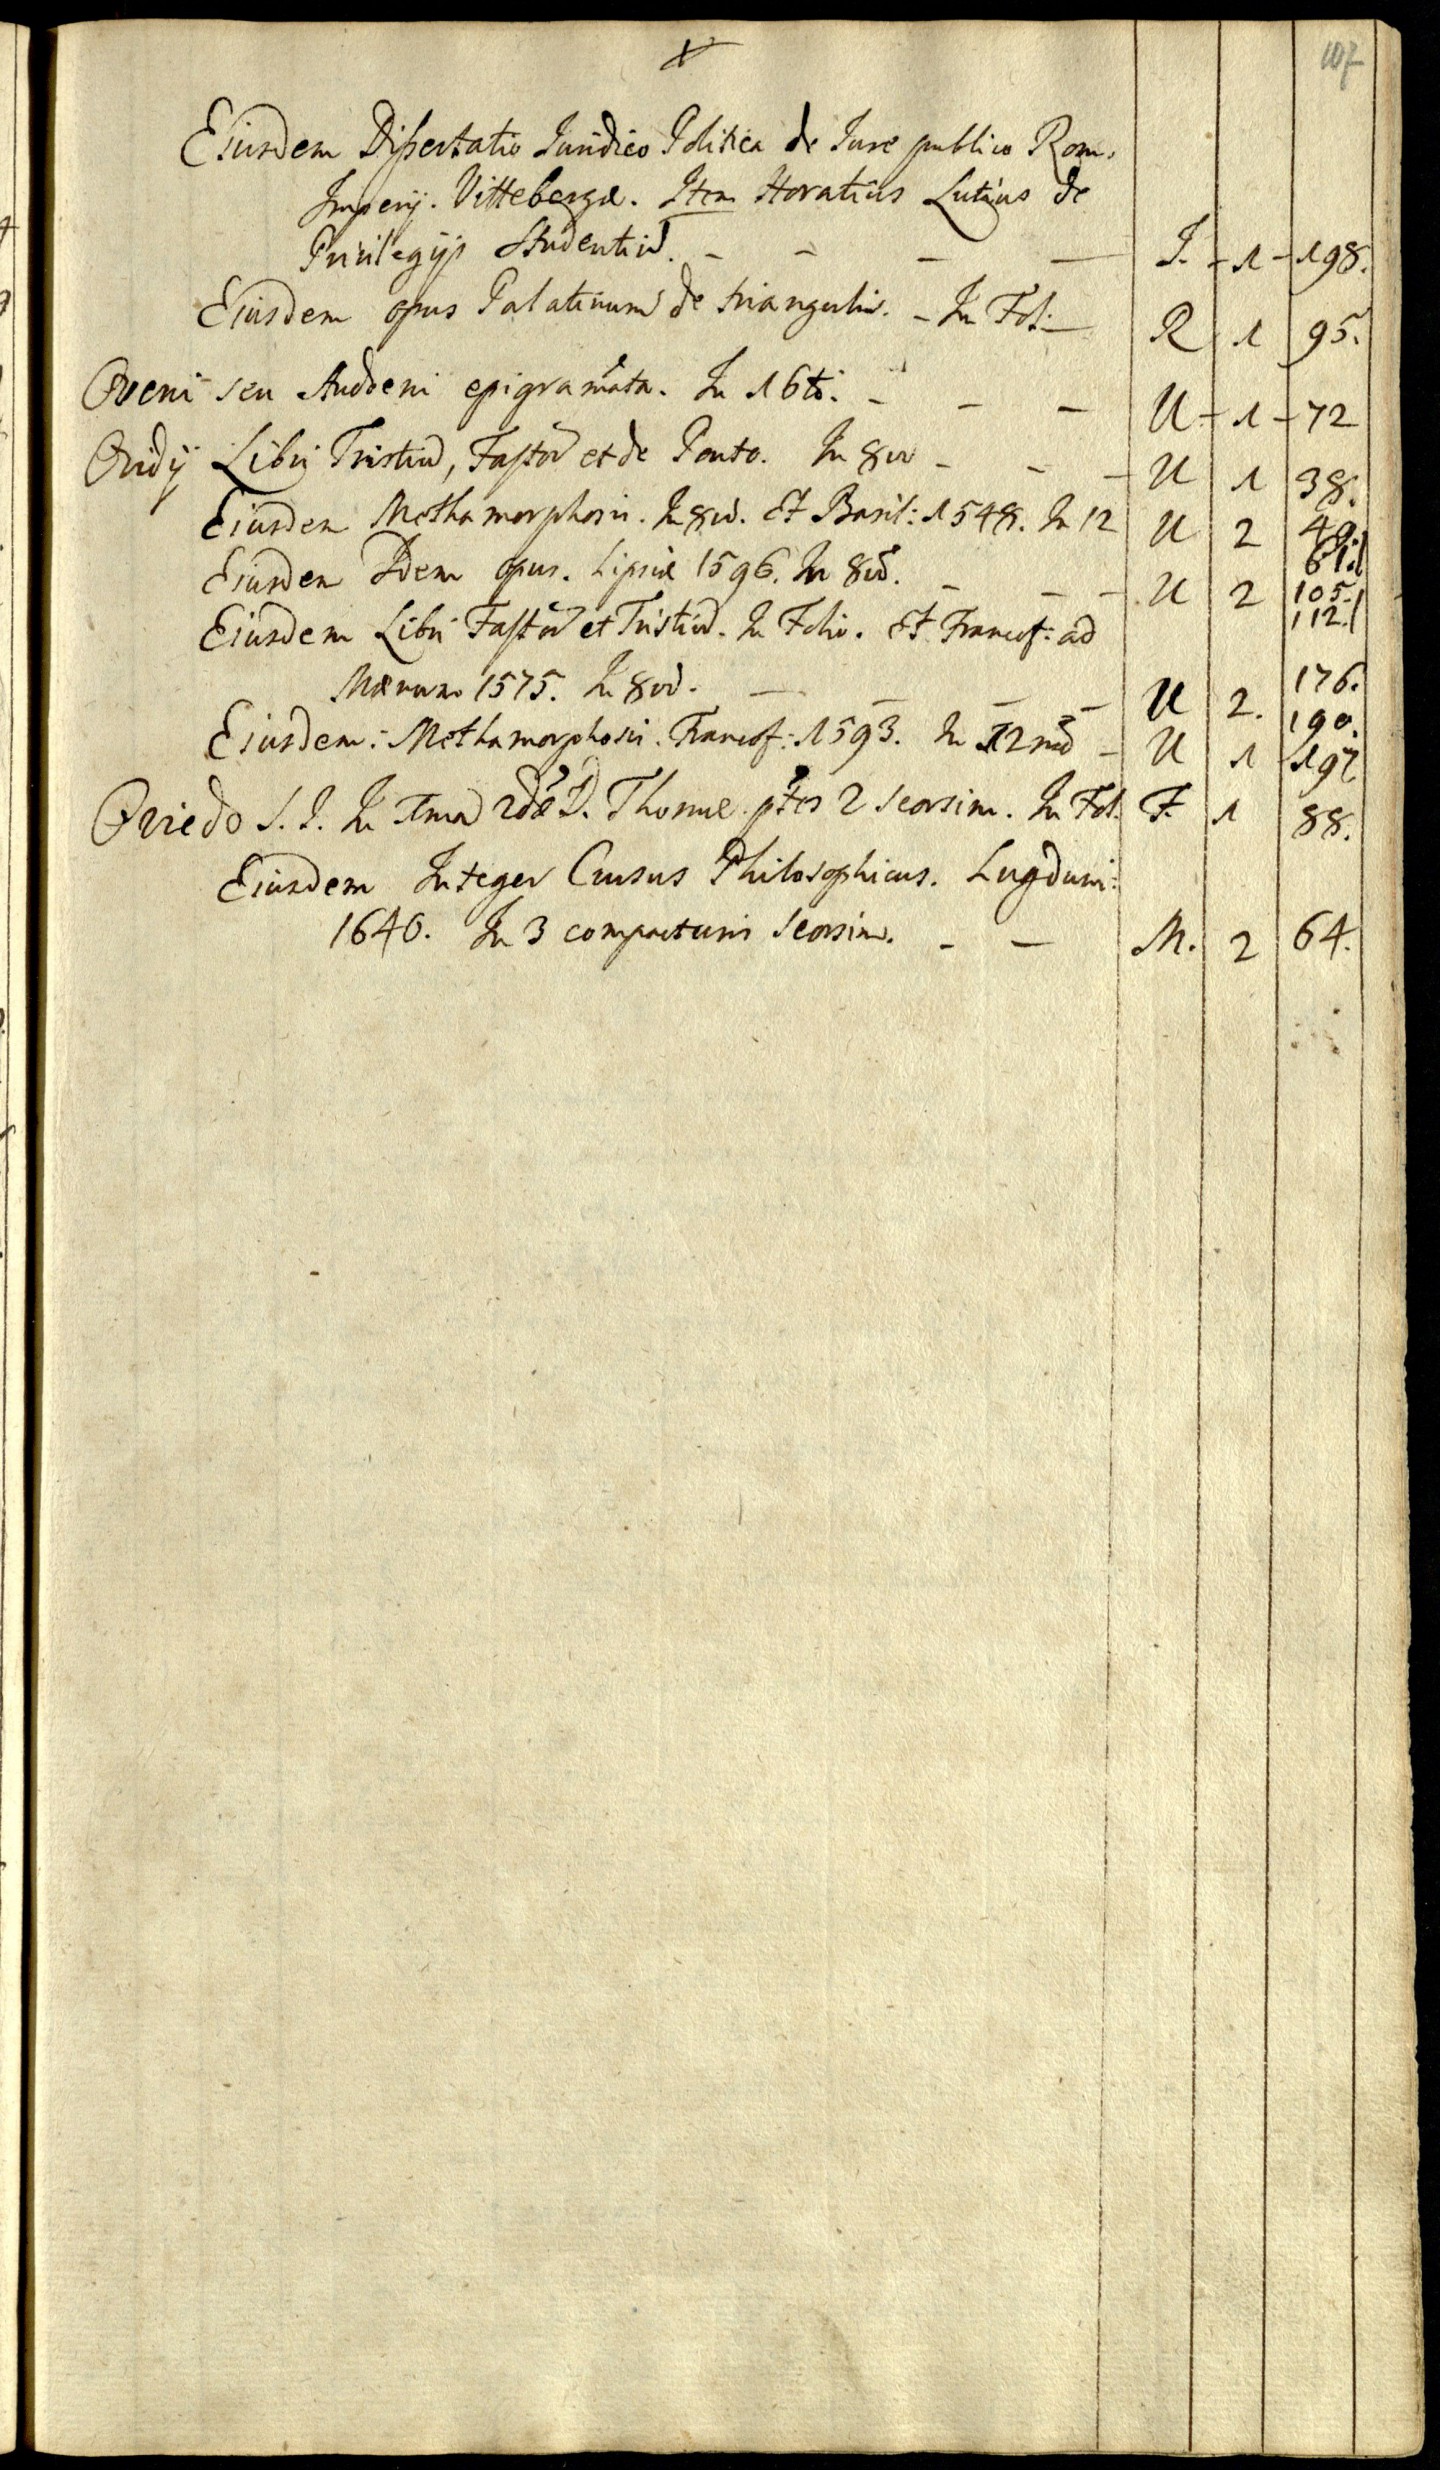 107
Eiusdem Dissertatio Iuridico Politica de Iure publico Rom.
Imperij. Vittebergæ. Item Horatius Lutius de
Privilegijs Studentiū. - - - — I. - 1 - 198.
Eiusdem opus Palatinum de triangulis. - In Fol: — R 1 95.
Oveni seu Audoeni epigram̃ata. In 16to. - - — U - 1 - 72
Ovidij Libri Tristiū, Fastoꝝ et de Ponto. In 8vo - - — U 1 38.
Eiusdem Methamorphosis. In 8vo. Et Basil: 1548. In 12 U 2 40.
61.
Eiusdem Idem opus. Lipsiæ 1596. In 8vo. - — - U 2 105.
112.
Eiusdem Libri Fastoꝝ et Tristiū. In Folio. Et Francof: ad
Mœnum 1575. In 8vo. — - — - U 2. 176.
190.
Eiusdem: Methamorphosis. Francof: 1593. In 12mo - U 1 197
Oviedo S. I. In 1mā 2dæ D. Thomæ ptes 2 seorsim. In Fol. F. 1 88.
Eiusdem Integer Cursus Philosophicus. Lugduni:
1640. In 3 compacturis seorsim. - — M. 2 64.